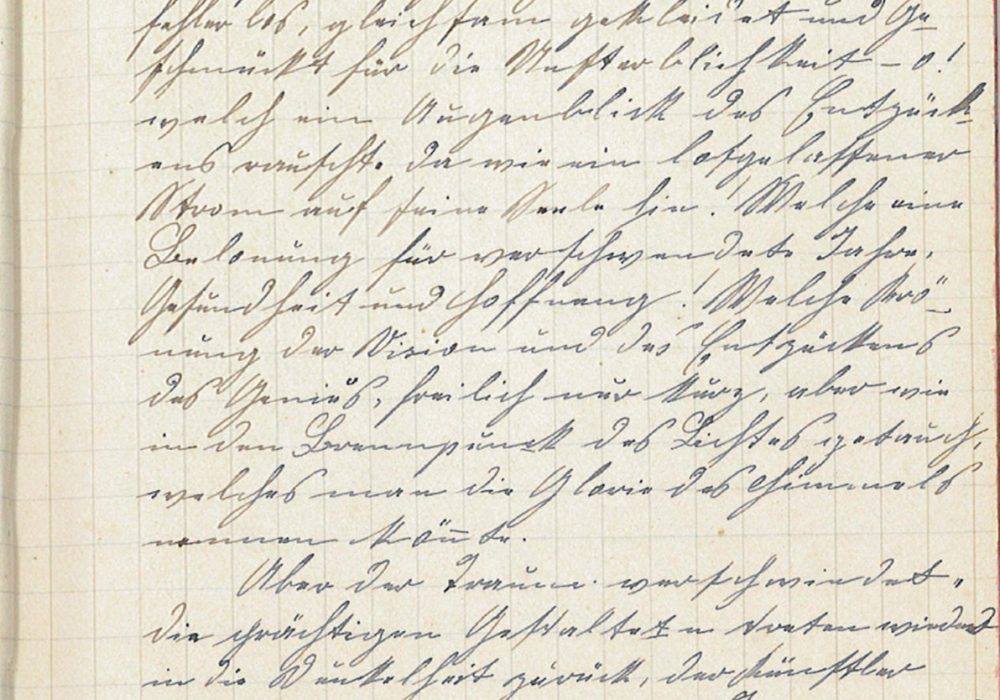 fehlerlos, gleichsam gekleidet und Ge-
schmückt für die Unsterblichkeit – o!
welch ein Augenblick des Entzück-
ens rauscht da wie ein losgelassener
Strom auf seine Seele hin! Welche eine
Belonung für verschwendete Jahre,
Gesundheit und Hoffnung! Welche Krö-
nung der Vision und des Entzückens
des Genius, freilich nur kurz, aber wie
in den Brennpunck des Lichtes getauch,
welches man die Glorie des Himmels
nennen könnte.
Aber der Traum verschwindet,
die prächtigen Gestalten treten wieder
in die Dunkelheit zurück, der Künstler